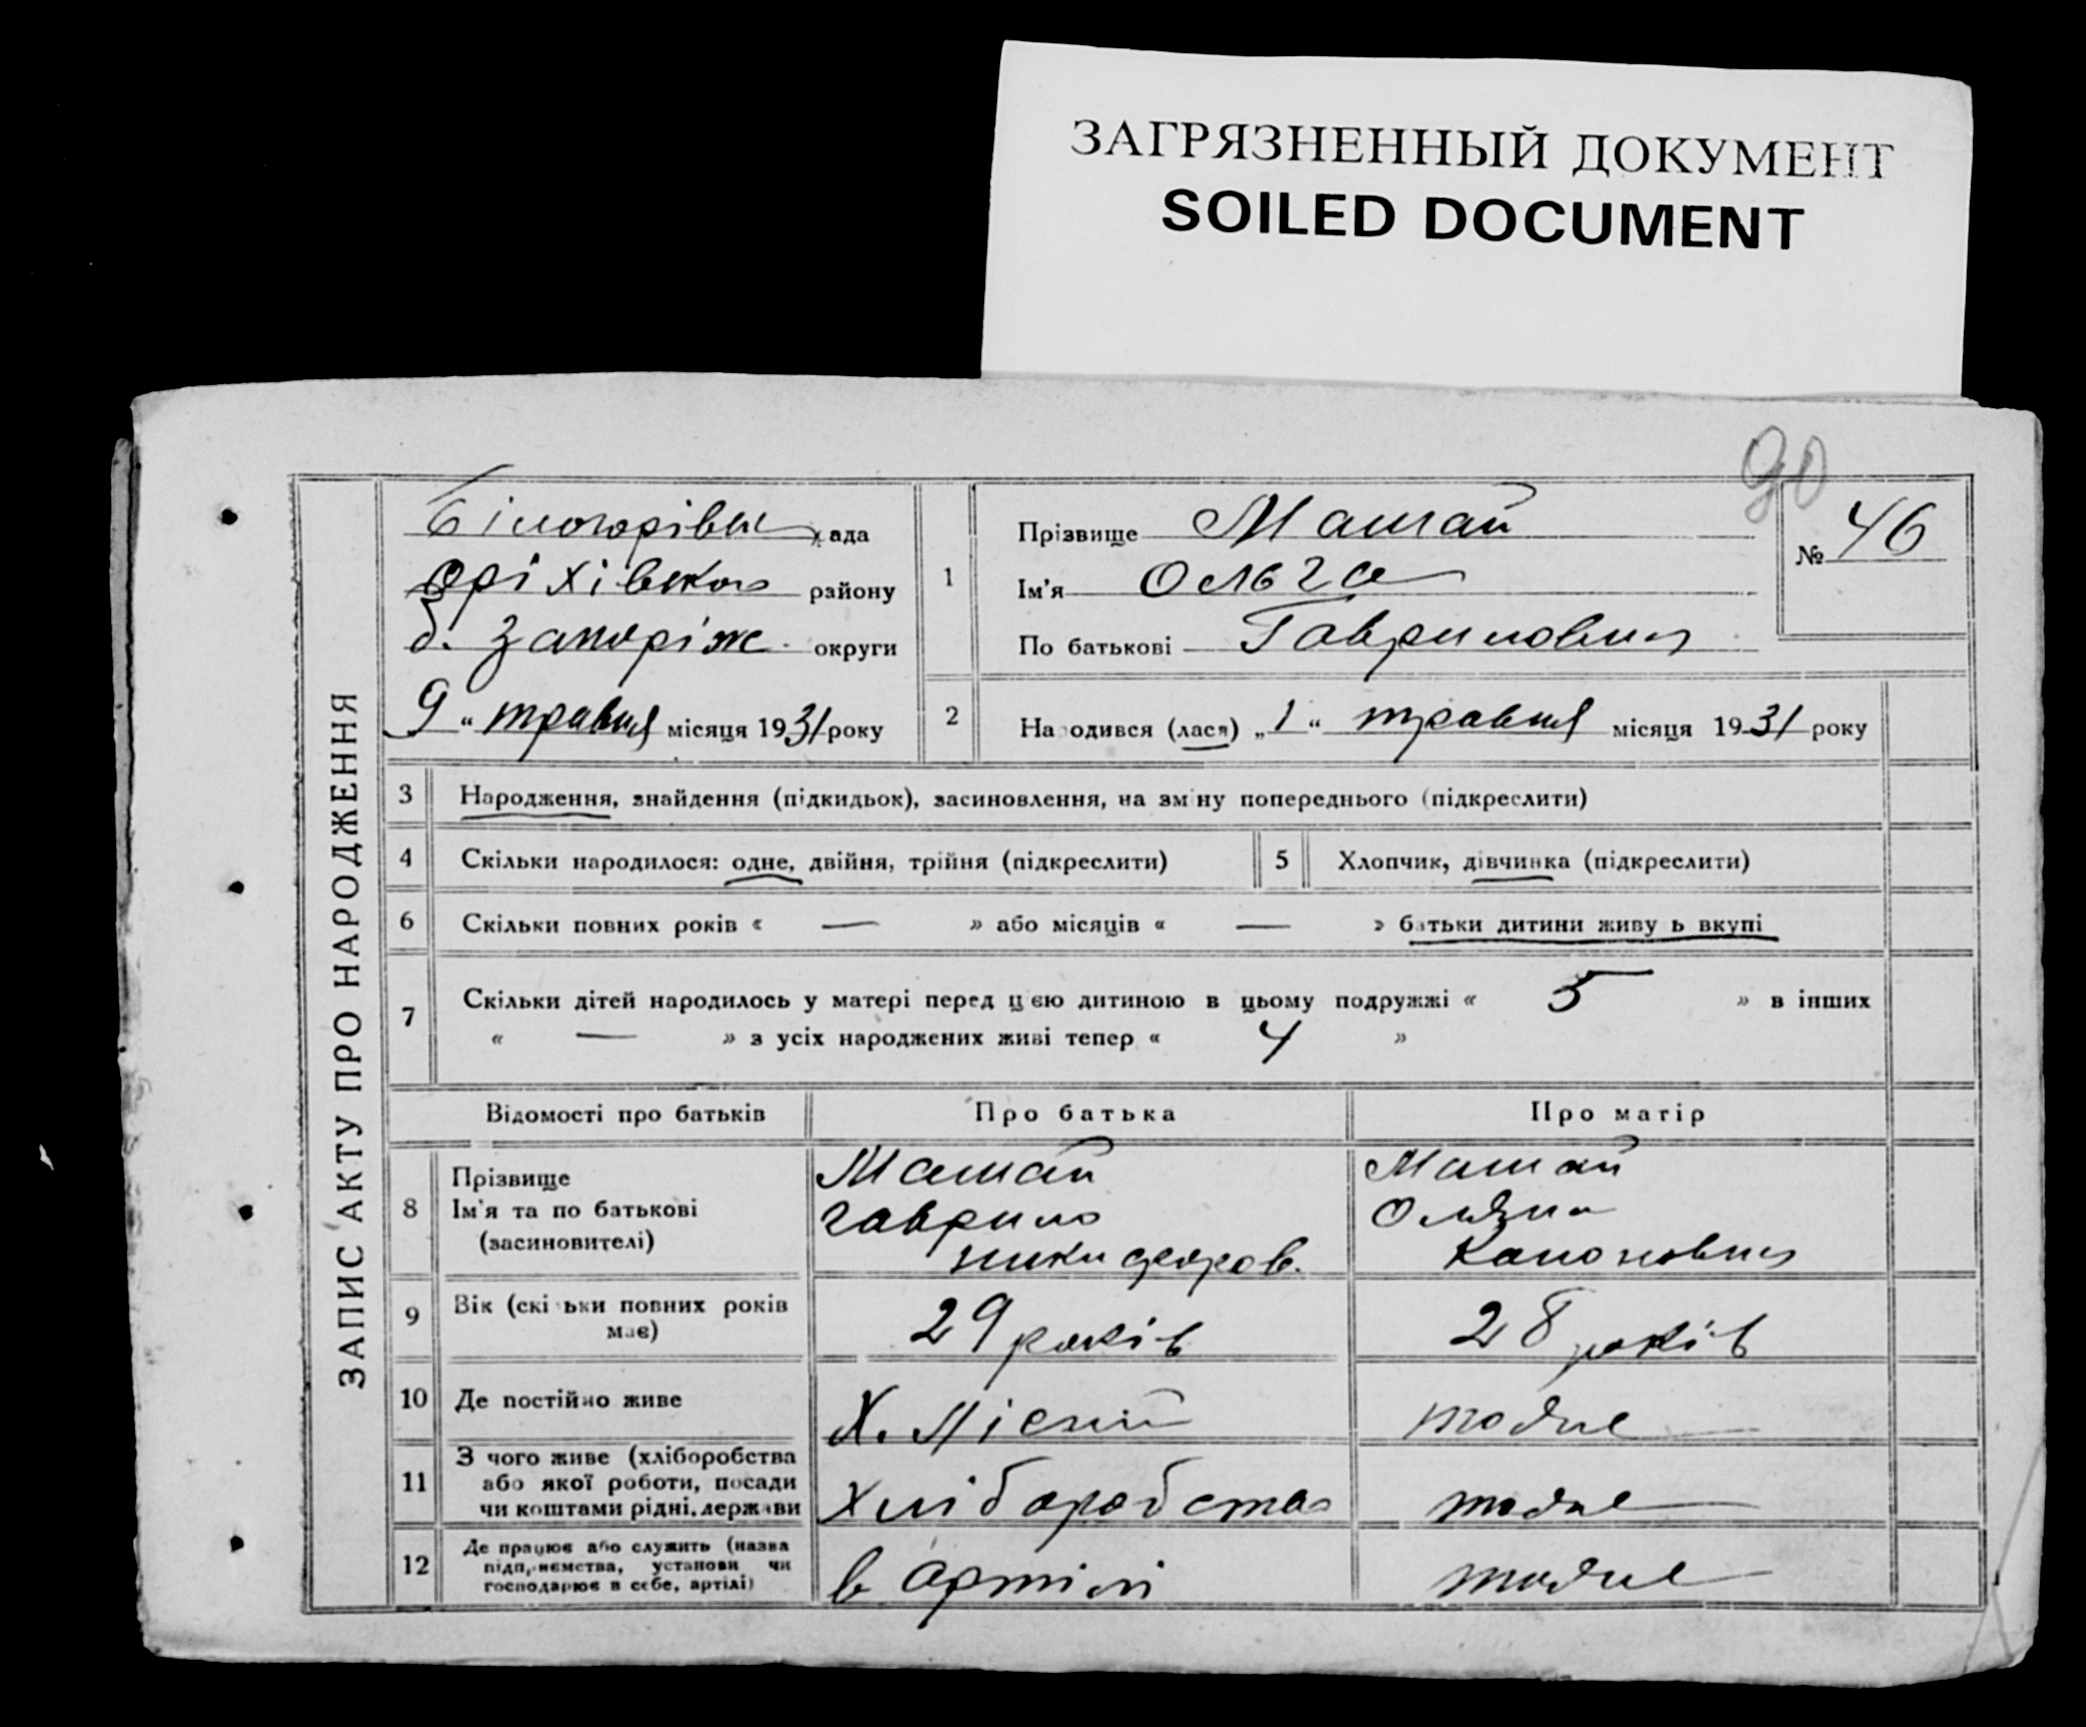 ЗАГРЯЗНЕННЫЙ ДОКУМЕНТ
SOILED DOCUMENT
90
ЗАПИС АКТУ ПРО НАРОДЖЕННЯ
Білогорівськ рада
Оріхівського району
б. Запоріж. округи
9 “ травня місяця 1931 року
1
Прізвище Машай
Ім'я Ольга
По батькові Гавриловна
№ 46
2 Народився (лася) „1“ травня місяця 1931 року
3 Народження, знайдення (підкидьок), засиновлення, на зміну попереднього (підкреслити)
4 Скільки народилося: одне, двійня, трійня (підкреслити) 5 Хлопчик, дівчинка (підкреслити)
6 Скільки повних років « — » або місяців « — » батьки дитини живуть вкупі
7 Скільки дітей народилось у матері перед цією дитиною в цьому подружжі « 5 » в інших
« — » з усіх народжених живі тепер « 4 »
Відомості про батьків Про батька Про матір
8 Прізвище Машай Машай
Ім'я та по батькові Гаврило
(засиновителі) Никифоров.
9 Вік (скільки повних років має) 29 років 28 років
10 Де постійно живе Х. тодже
11 З чого живе (хліборобства
або якої роботи, посади
чи коштами рідні, держави хліборобства тодже
12 Де працює або служить (назва
підприємства, установи чи
господарює в себе, артілі) в артілі тодже